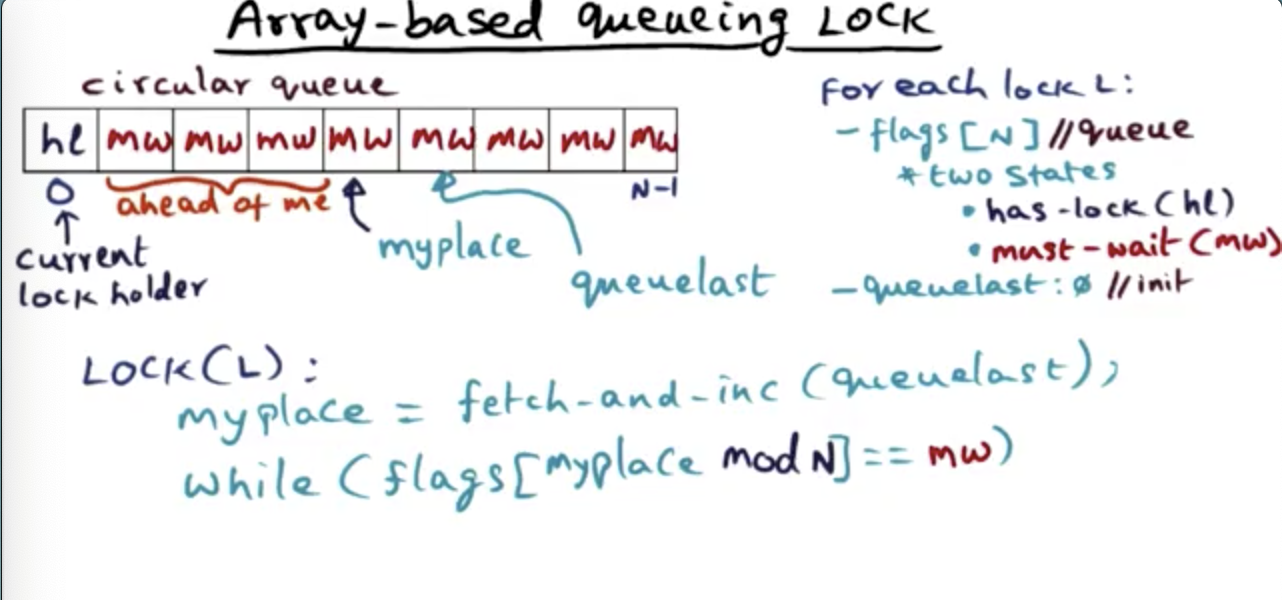 Array-based queueing LOCK
circular queue
hl mw mw mw mw mw mw mw mw
0 N-1
ahead of me
current
lock holder
myplace
queuelast
For each lock L:
- flags [N] //queue
* two states
• has-lock (hl)
• must-wait (mw)
- queuelast: ø //init
LOCK(L):
myplace = fetch-and-inc (queuelast);
while (flags[myplace mod N] == mw)